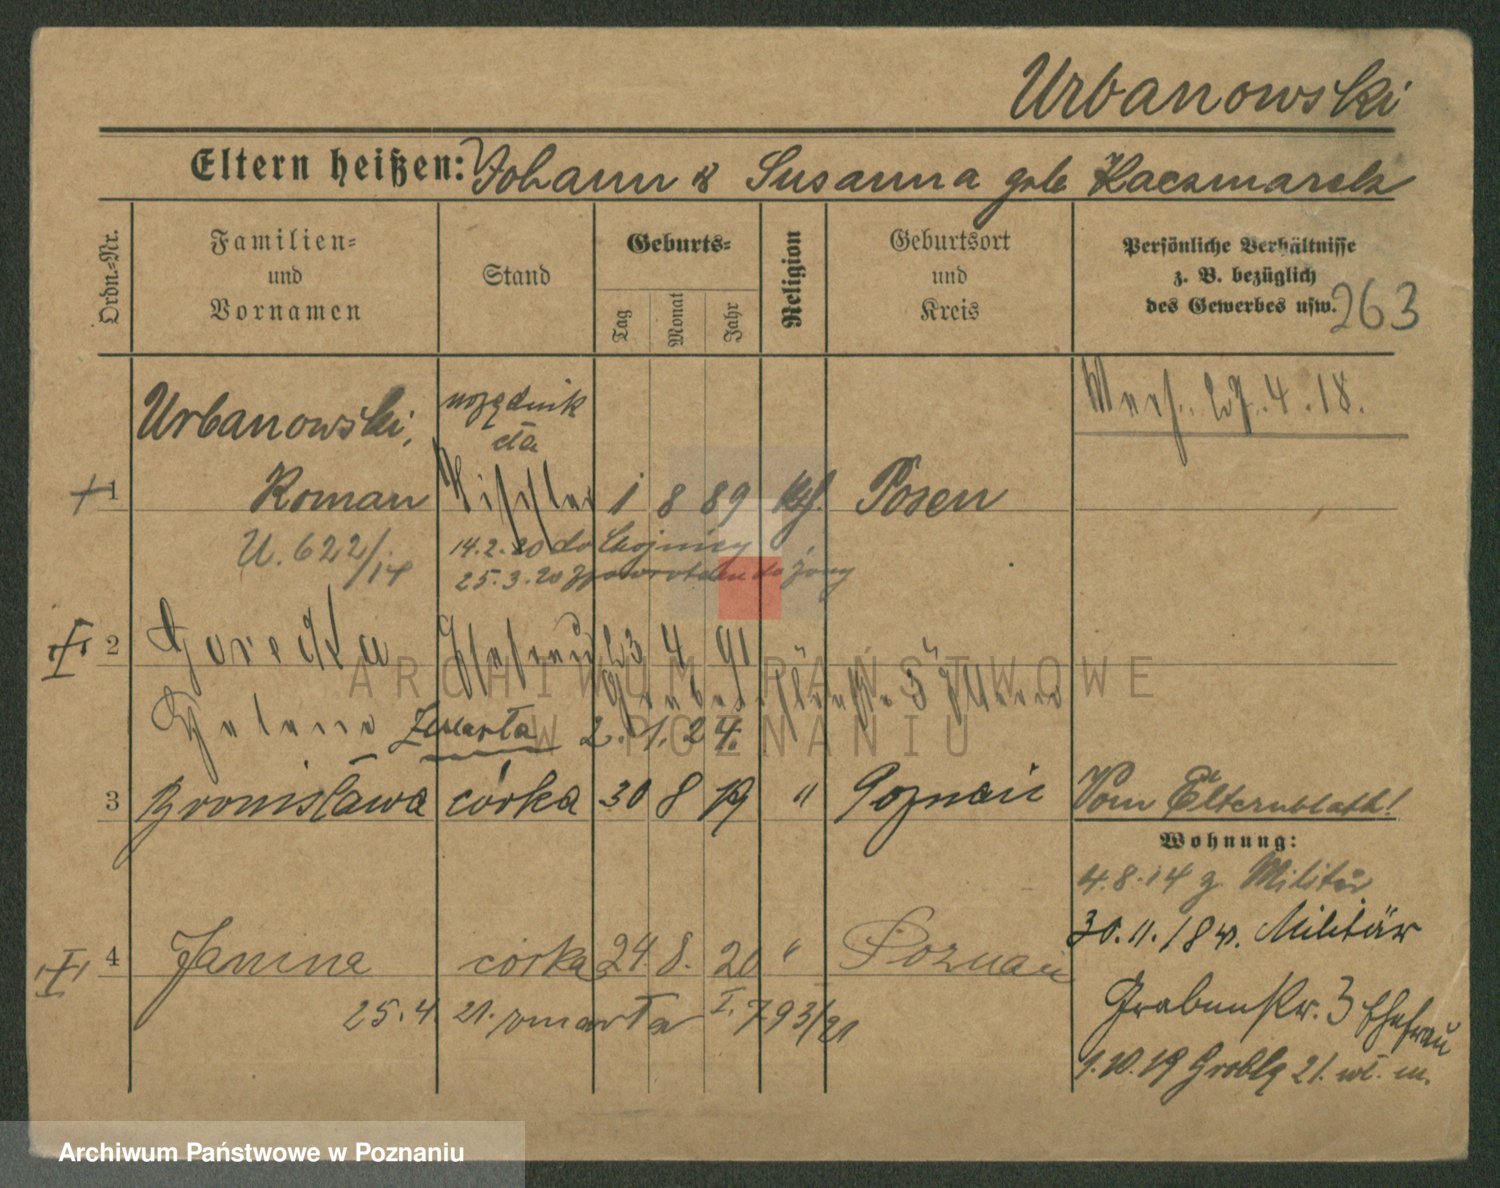 Urbanowski
Eltern heißen: Johann & Susanna geb Kaczmarek
Ordn.=Nr.
Familien=
und
Vornamen
Stand
Geburts=
Tag
Monat
Jahr
Religion
Geburtsort
und
Kreis
Persönliche Verhältnisse
z. B. bezüglich
des Gewerbes usw.
263
27.4.18.
Urbanowski,
urzędnik
cła
1 Roman Tischler 1 8 89 kth. Posen
U. 622/14
14.2.20 do Chojnicy
25.3.20 z powrotem do żony
2 Gorecka Ehefrau 23 4 91
Helene zmarła 2.1.24.
3 Bronisława córka 30 8 19 " Poznań
Vom Elternblatt!
Wohnung:
4.8.14 z. Militär
30.11.18 v. Militär
4 Janina córka 24 8. 20 " Poznań
25.4.21. zmarła I. 793/21
Grabenstr. 3 Ehefrau
1.10.19 Groblą 21. wł. m.
ARCHIWUM PAŃSTWOWE
W POZNANIU
Archiwum Państwowe w Poznaniu